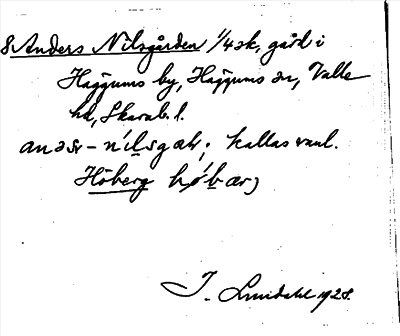 8 Anders Nilsgården 1/4 sk, gård i
Häggums by, Häggums sn, Valle
hd, Skarab. l.
anəsr-nílsgaɫr; kallas vanl.
Höberg hǿbærj
J. Lundahl 1928.